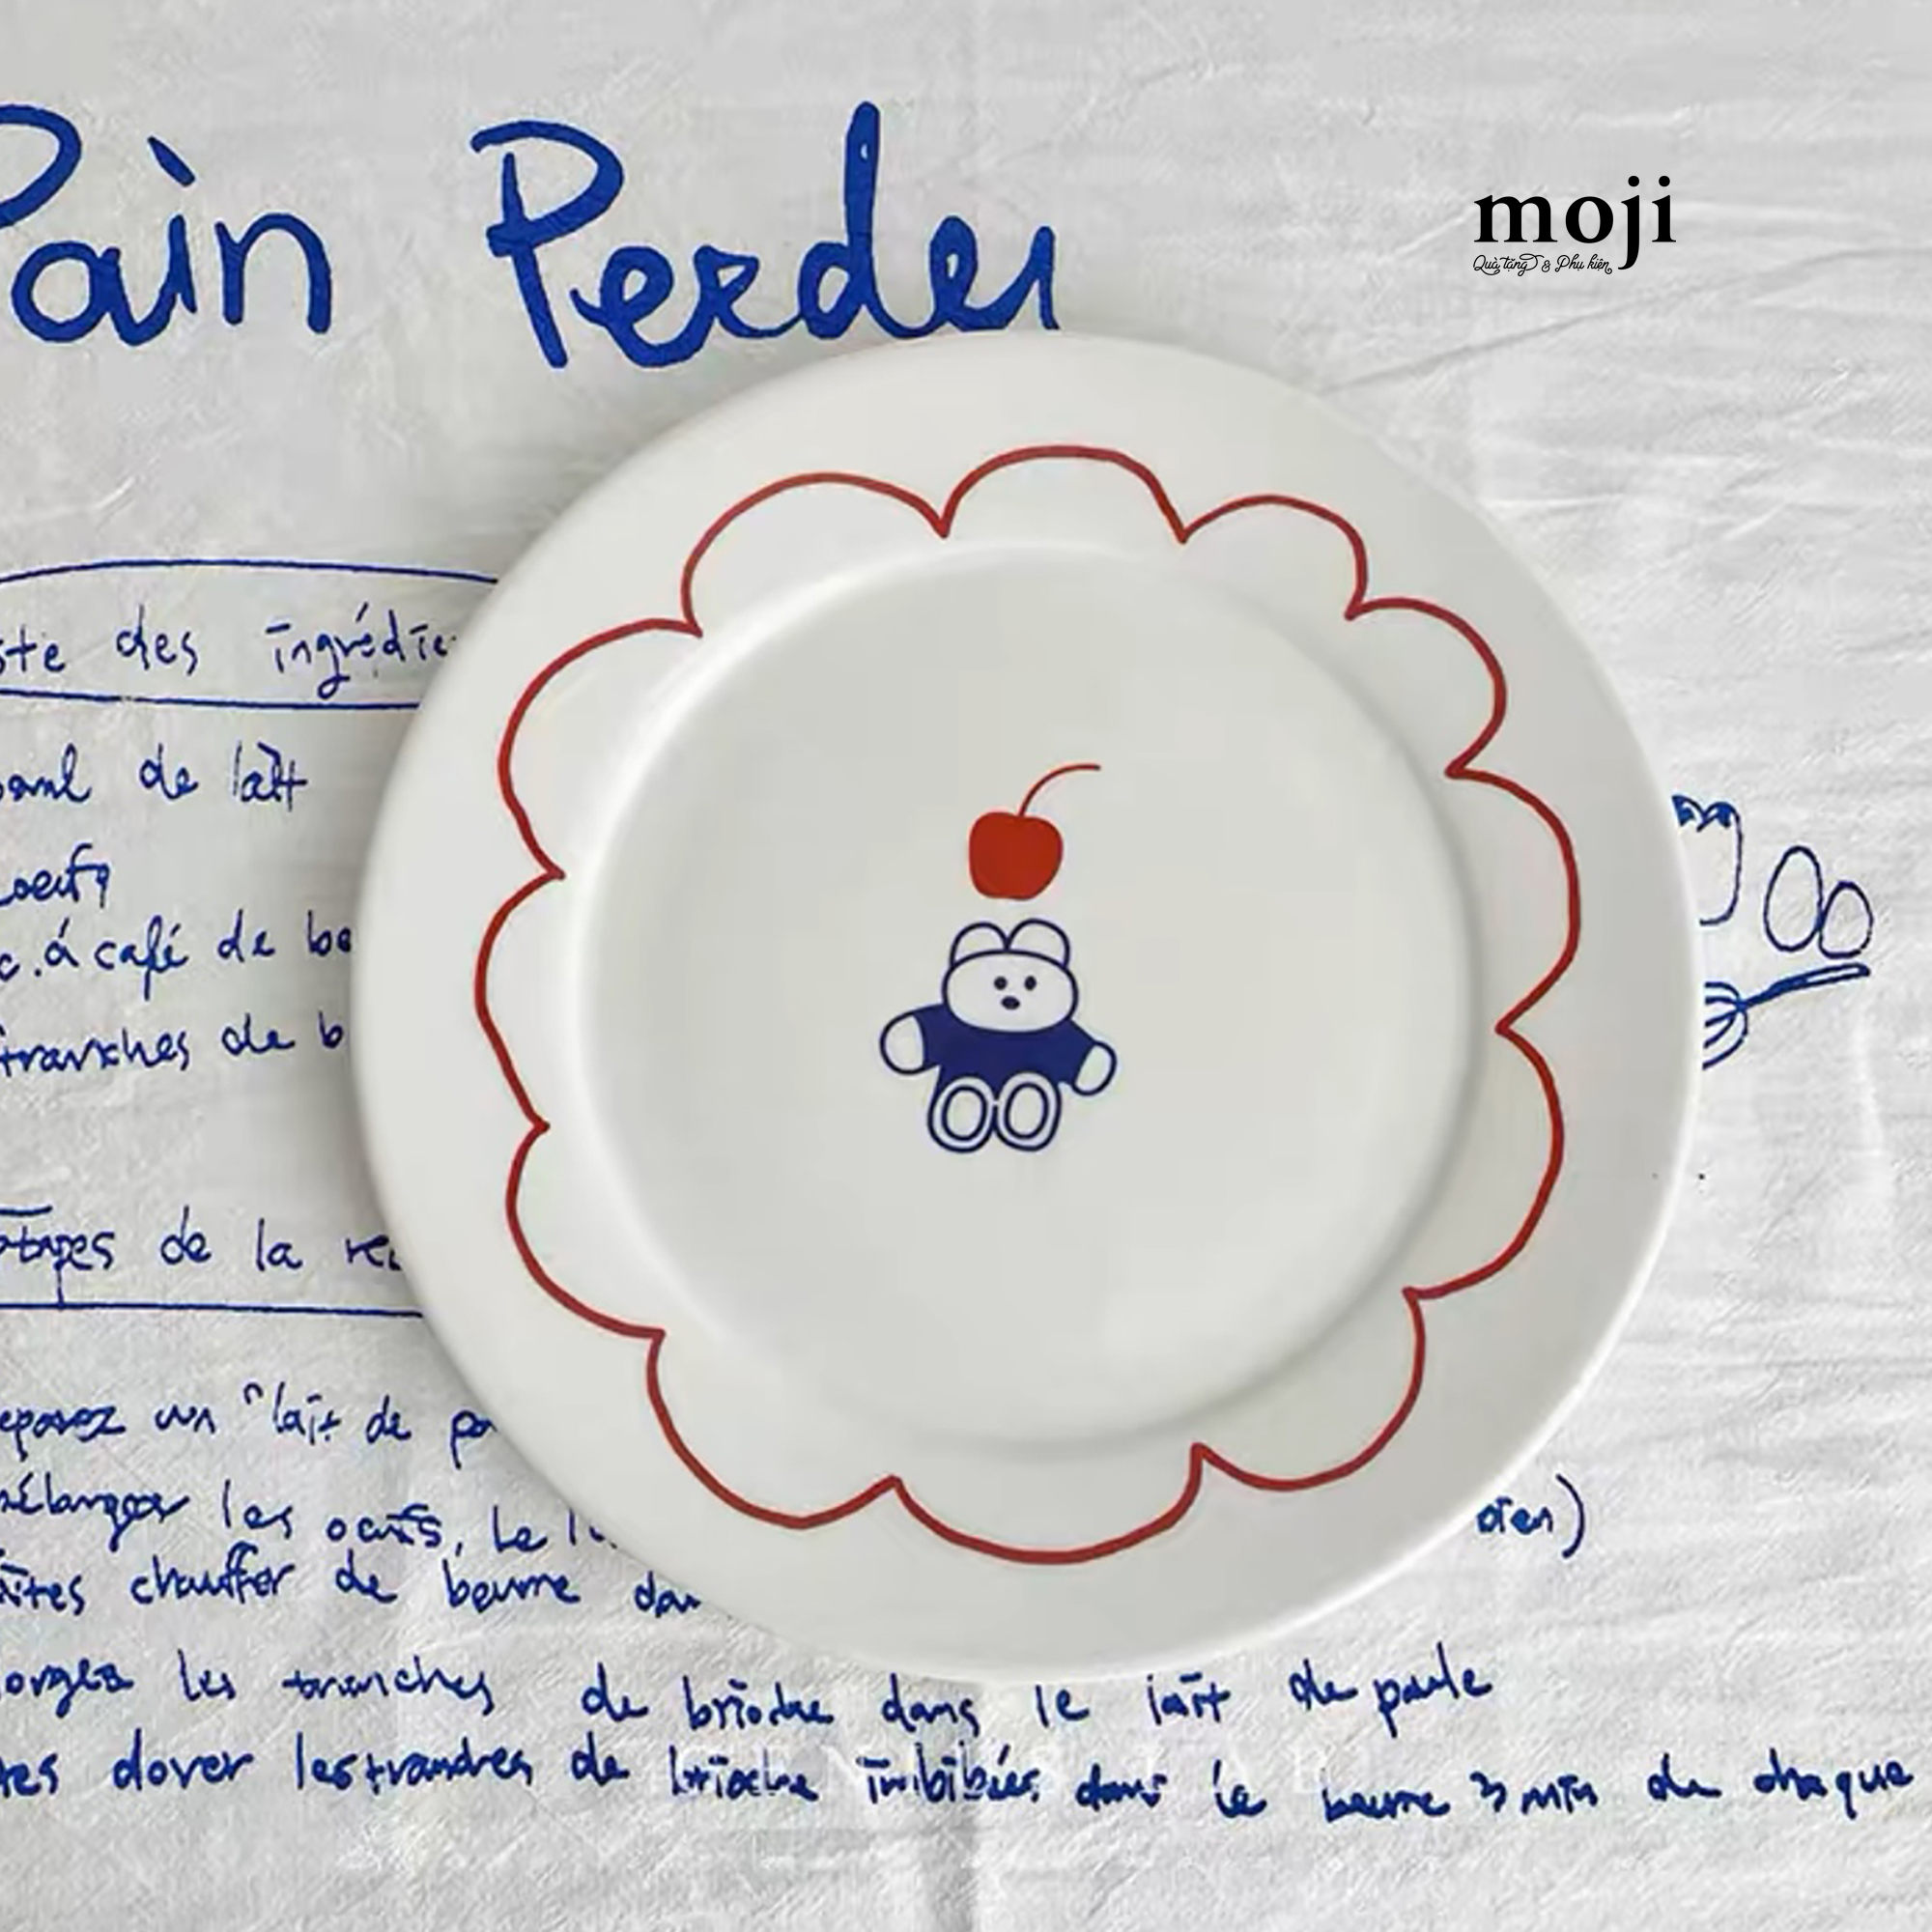 Pain Perdu
moji
Quà tặng & Phụ kiện
des ingrédie
de lait
oeufs
c. à café de be
tranches de b
de la re
un "lait de po
mélanger les oeufs, le l
chauffer de beurre dan
oien)
les tranches de brioche dans le lait de paule
dorer les tranches de brioche imbibées dans le beurre 3 min de chaque